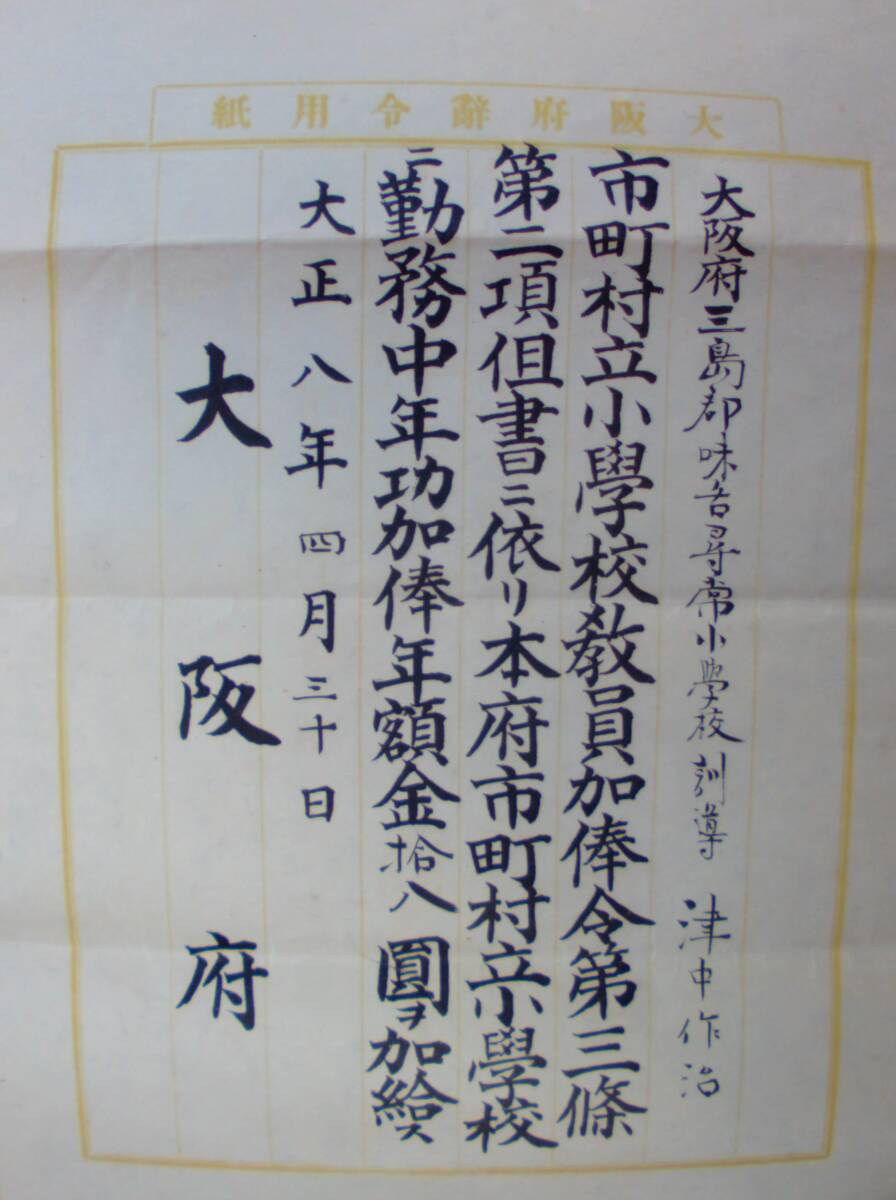 大阪府辭令用紙
大阪府三島郡味舌尋常小學校訓導 津中作治
市町村立小學校教員加俸令第三條
第二項但書ニ依リ本府市町村立小學校
ニ勤務中年功加俸年額金拾八圓ヲ加給ス
大正八年四月三十日
大阪府